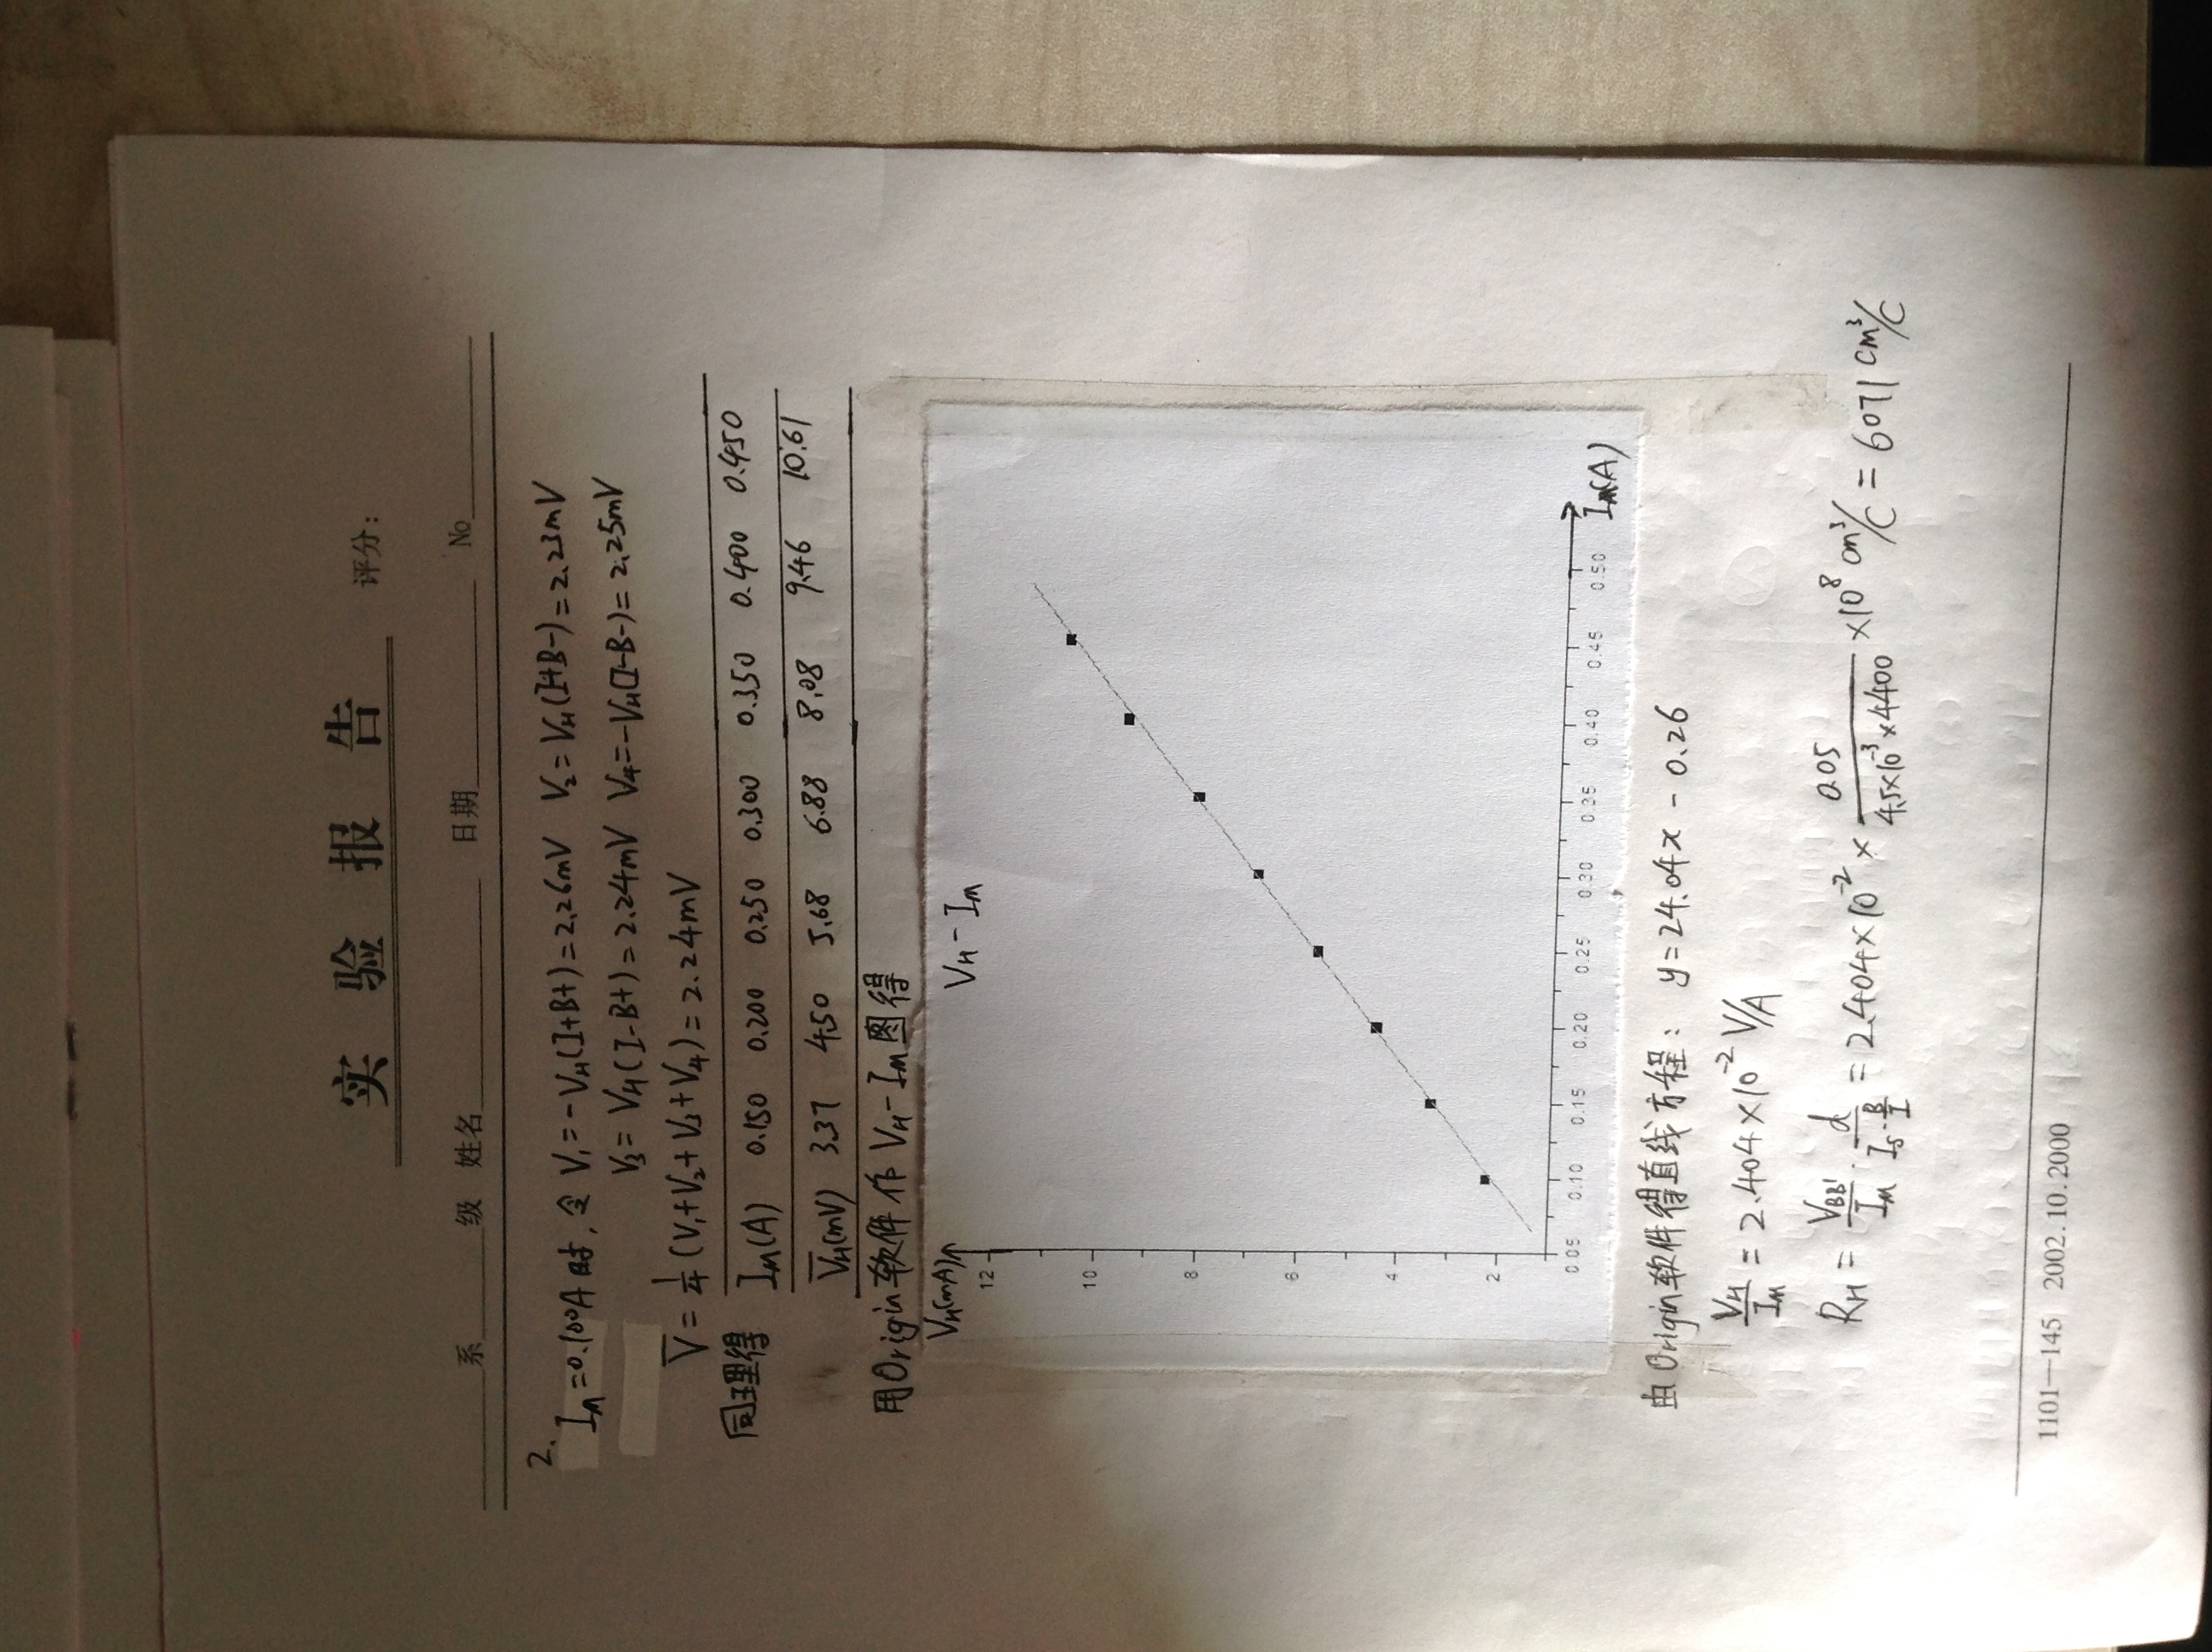 实 验 报 告 评分:
系 级 姓名 日期 No
2.
Iₘ=0.100A时,令 V₁=-V_H(I+B+)=2.26mV V₂=V_H(I+B-)=2.23mV
V₃=V_H(I-B+)=2.24mV V₄=-V_H(I-B-)=2.25mV
V̅=1/4(V₁+V₂+V₃+V₄)=2.24mV
同理得 I_M(A) 0.150 0.200 0.250 0.300 0.350 0.400 0.450
V̅_H(mV) 3.37 4.50 5.68 6.88 8.08 9.46 10.61
用Origin软件作 V_H-I_M图得
V_H(mA) V_H-I_M
12
10
8
6
4
2
0.05 0.10 0.15 0.20 0.25 0.30 0.35 0.40 0.45 0.50 I_M(A)
由Origin软件得直线方程: y=24.04x-0.26
V_H/I_M=2.404×10⁻² V/A
R_H=V_BB'/I_M·d/(I_S·B/I)=2.404×10⁻²×0.05/(4.5×10⁻³×4400)×10⁸cm³/C=6071cm³/C
1101—145 2002.10.2000